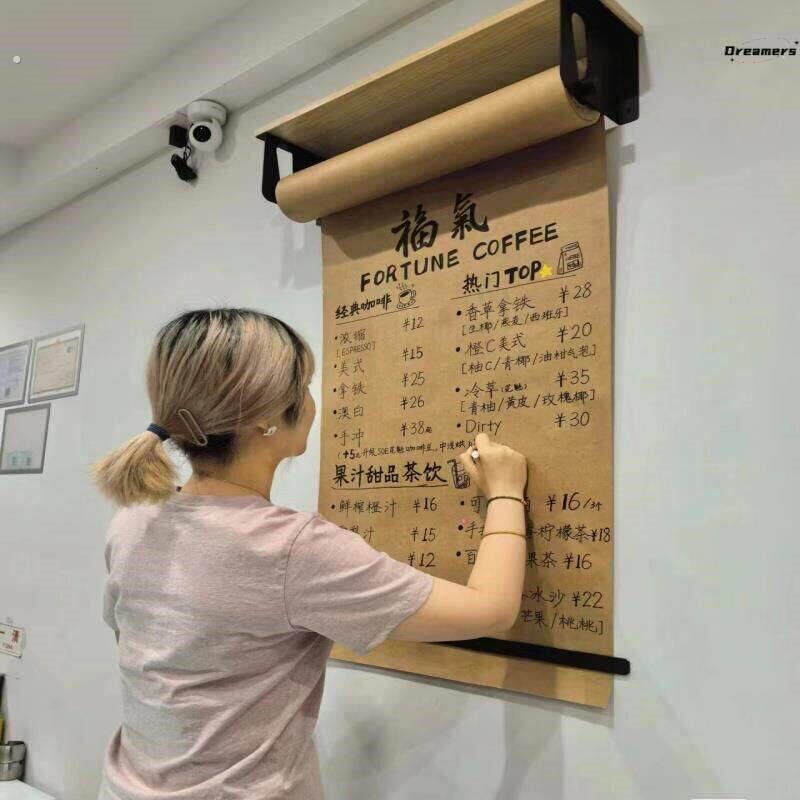 Dreamers
福氣
FORTUNE COFFEE
经典咖啡
·浓缩 ¥12
[ESPRESSO]
·美式 ¥15
·拿铁 ¥25
·澳白 ¥26
·手冲 ¥38起
热门TOP
·香草拿铁 ¥28
[生椰/燕麦/西班牙]
·橙C美式 ¥20
[柚C/青椰/油柑气泡]
·冷萃 ¥35
[青柚/黄皮/玫瑰椰]
·Dirty ¥30
(+5元升级SOE花魁咖啡豆,中浅烘
果汁甜品茶饮
·鲜榨橙汁 ¥16
汁 ¥15
¥12
·可 ¥16/个
·手 柠檬茶¥18
·百 果茶 ¥16
冰沙 ¥22
芒果/桃桃]